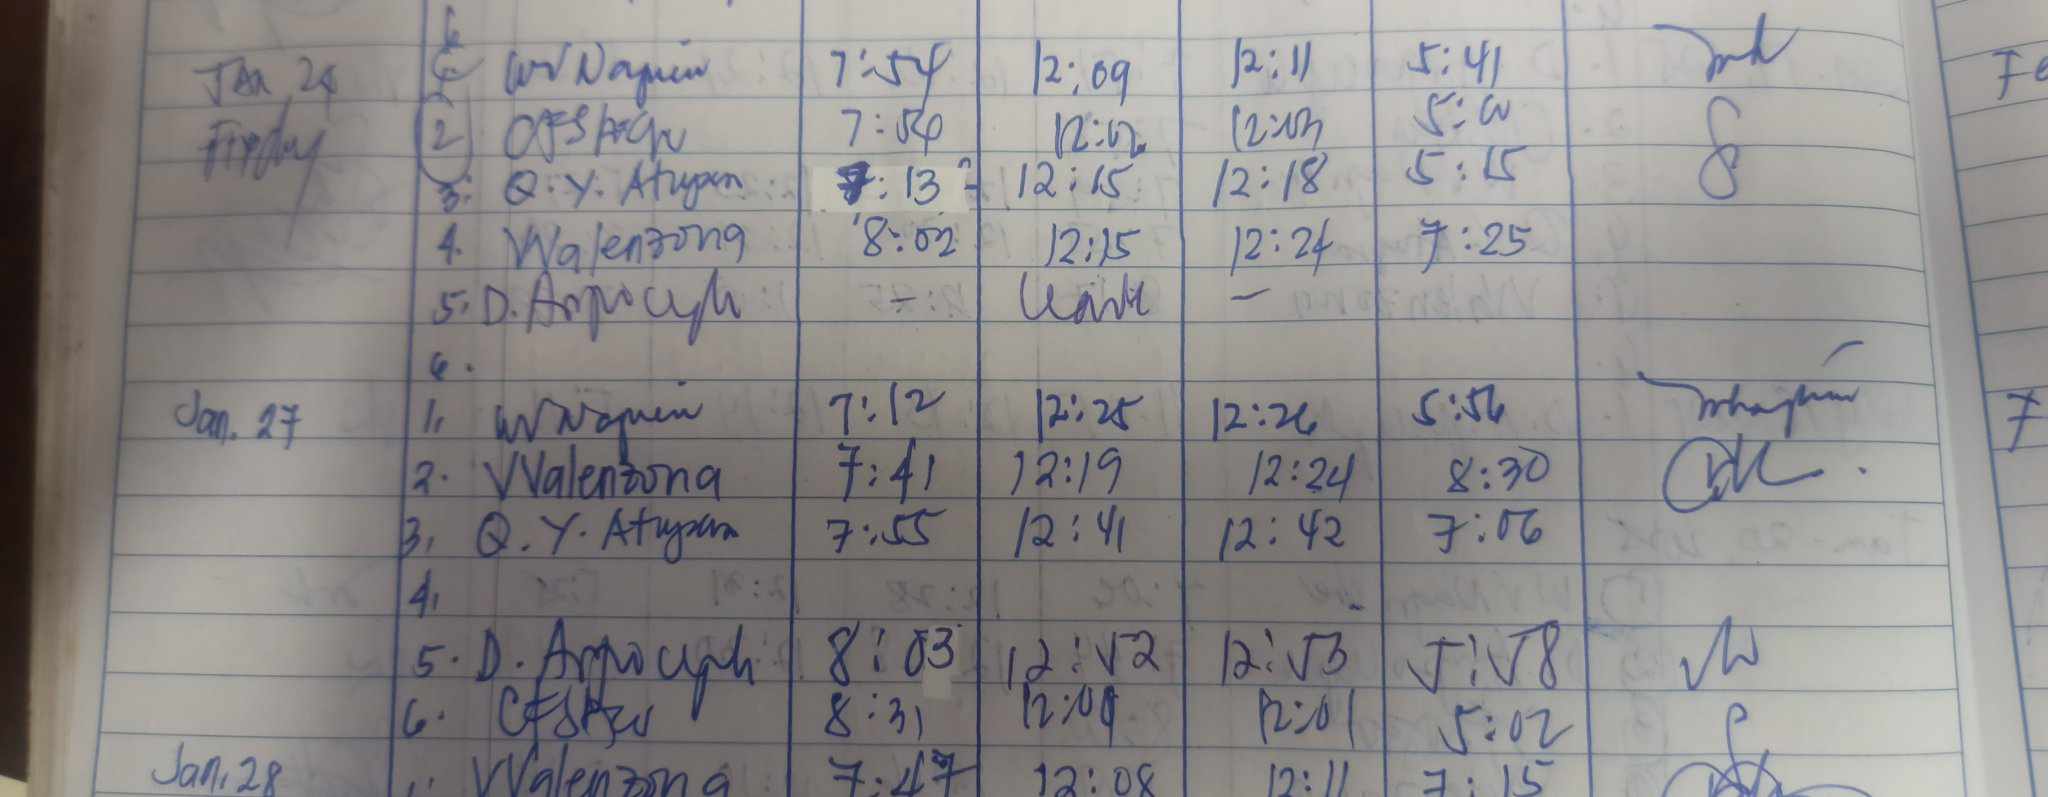 Jan. 24 1. WVNaquin 7:54 12:09 12:11 5:41
Friday 2 7:56 12:02 12:03 5:00
3. Q.Y. Atupan 7:13 12:15 12:18 5:15
4. VValenzona 8:02 12:15 12:24 7:25
5. D. - -
6.
Jan. 27 1. WVNaquin 7:12 12:25 12:26 5:56
2. VValenzona 7:41 12:19 12:24 8:30
3. Q.Y. Atupan 7:55 12:41 12:42 7:06
4.
5. D. 8:03 12:52 12:53 5:58
6. 8:31 12:01 12:01 5:02
Jan. 28 1. VValenzona 7:47 12:08 12:11 7:15